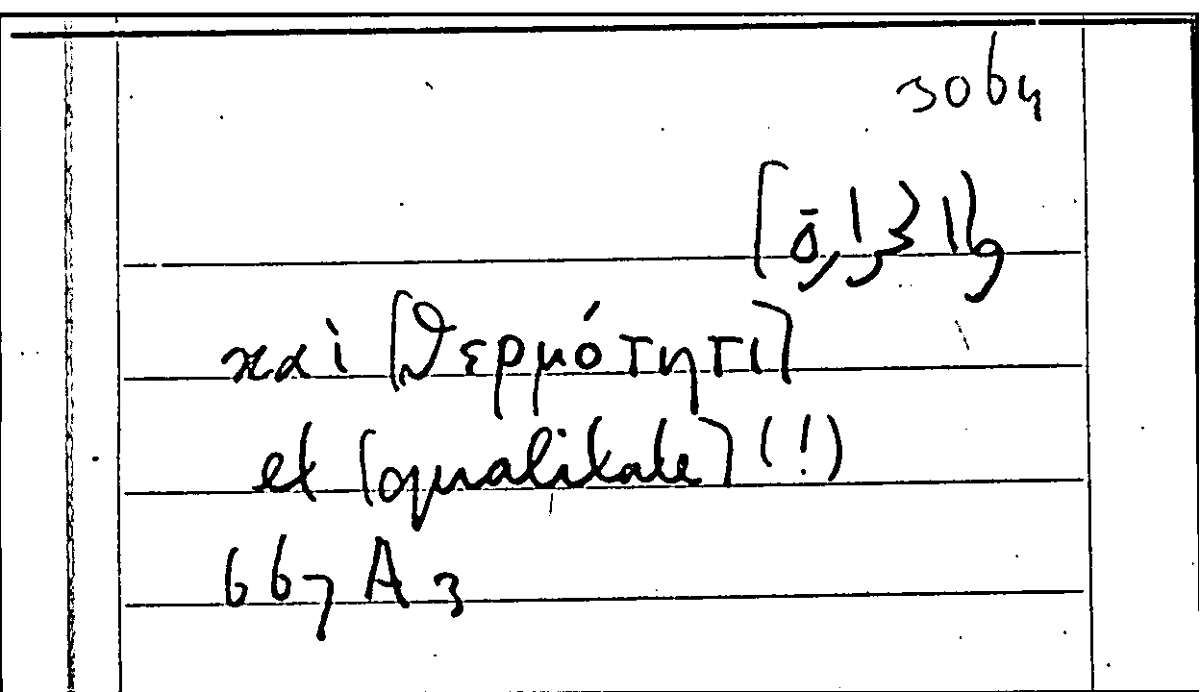 3064
و[الحرارة]
καὶ [θερμότητι]
et [qualitate] (!)
667 A 3